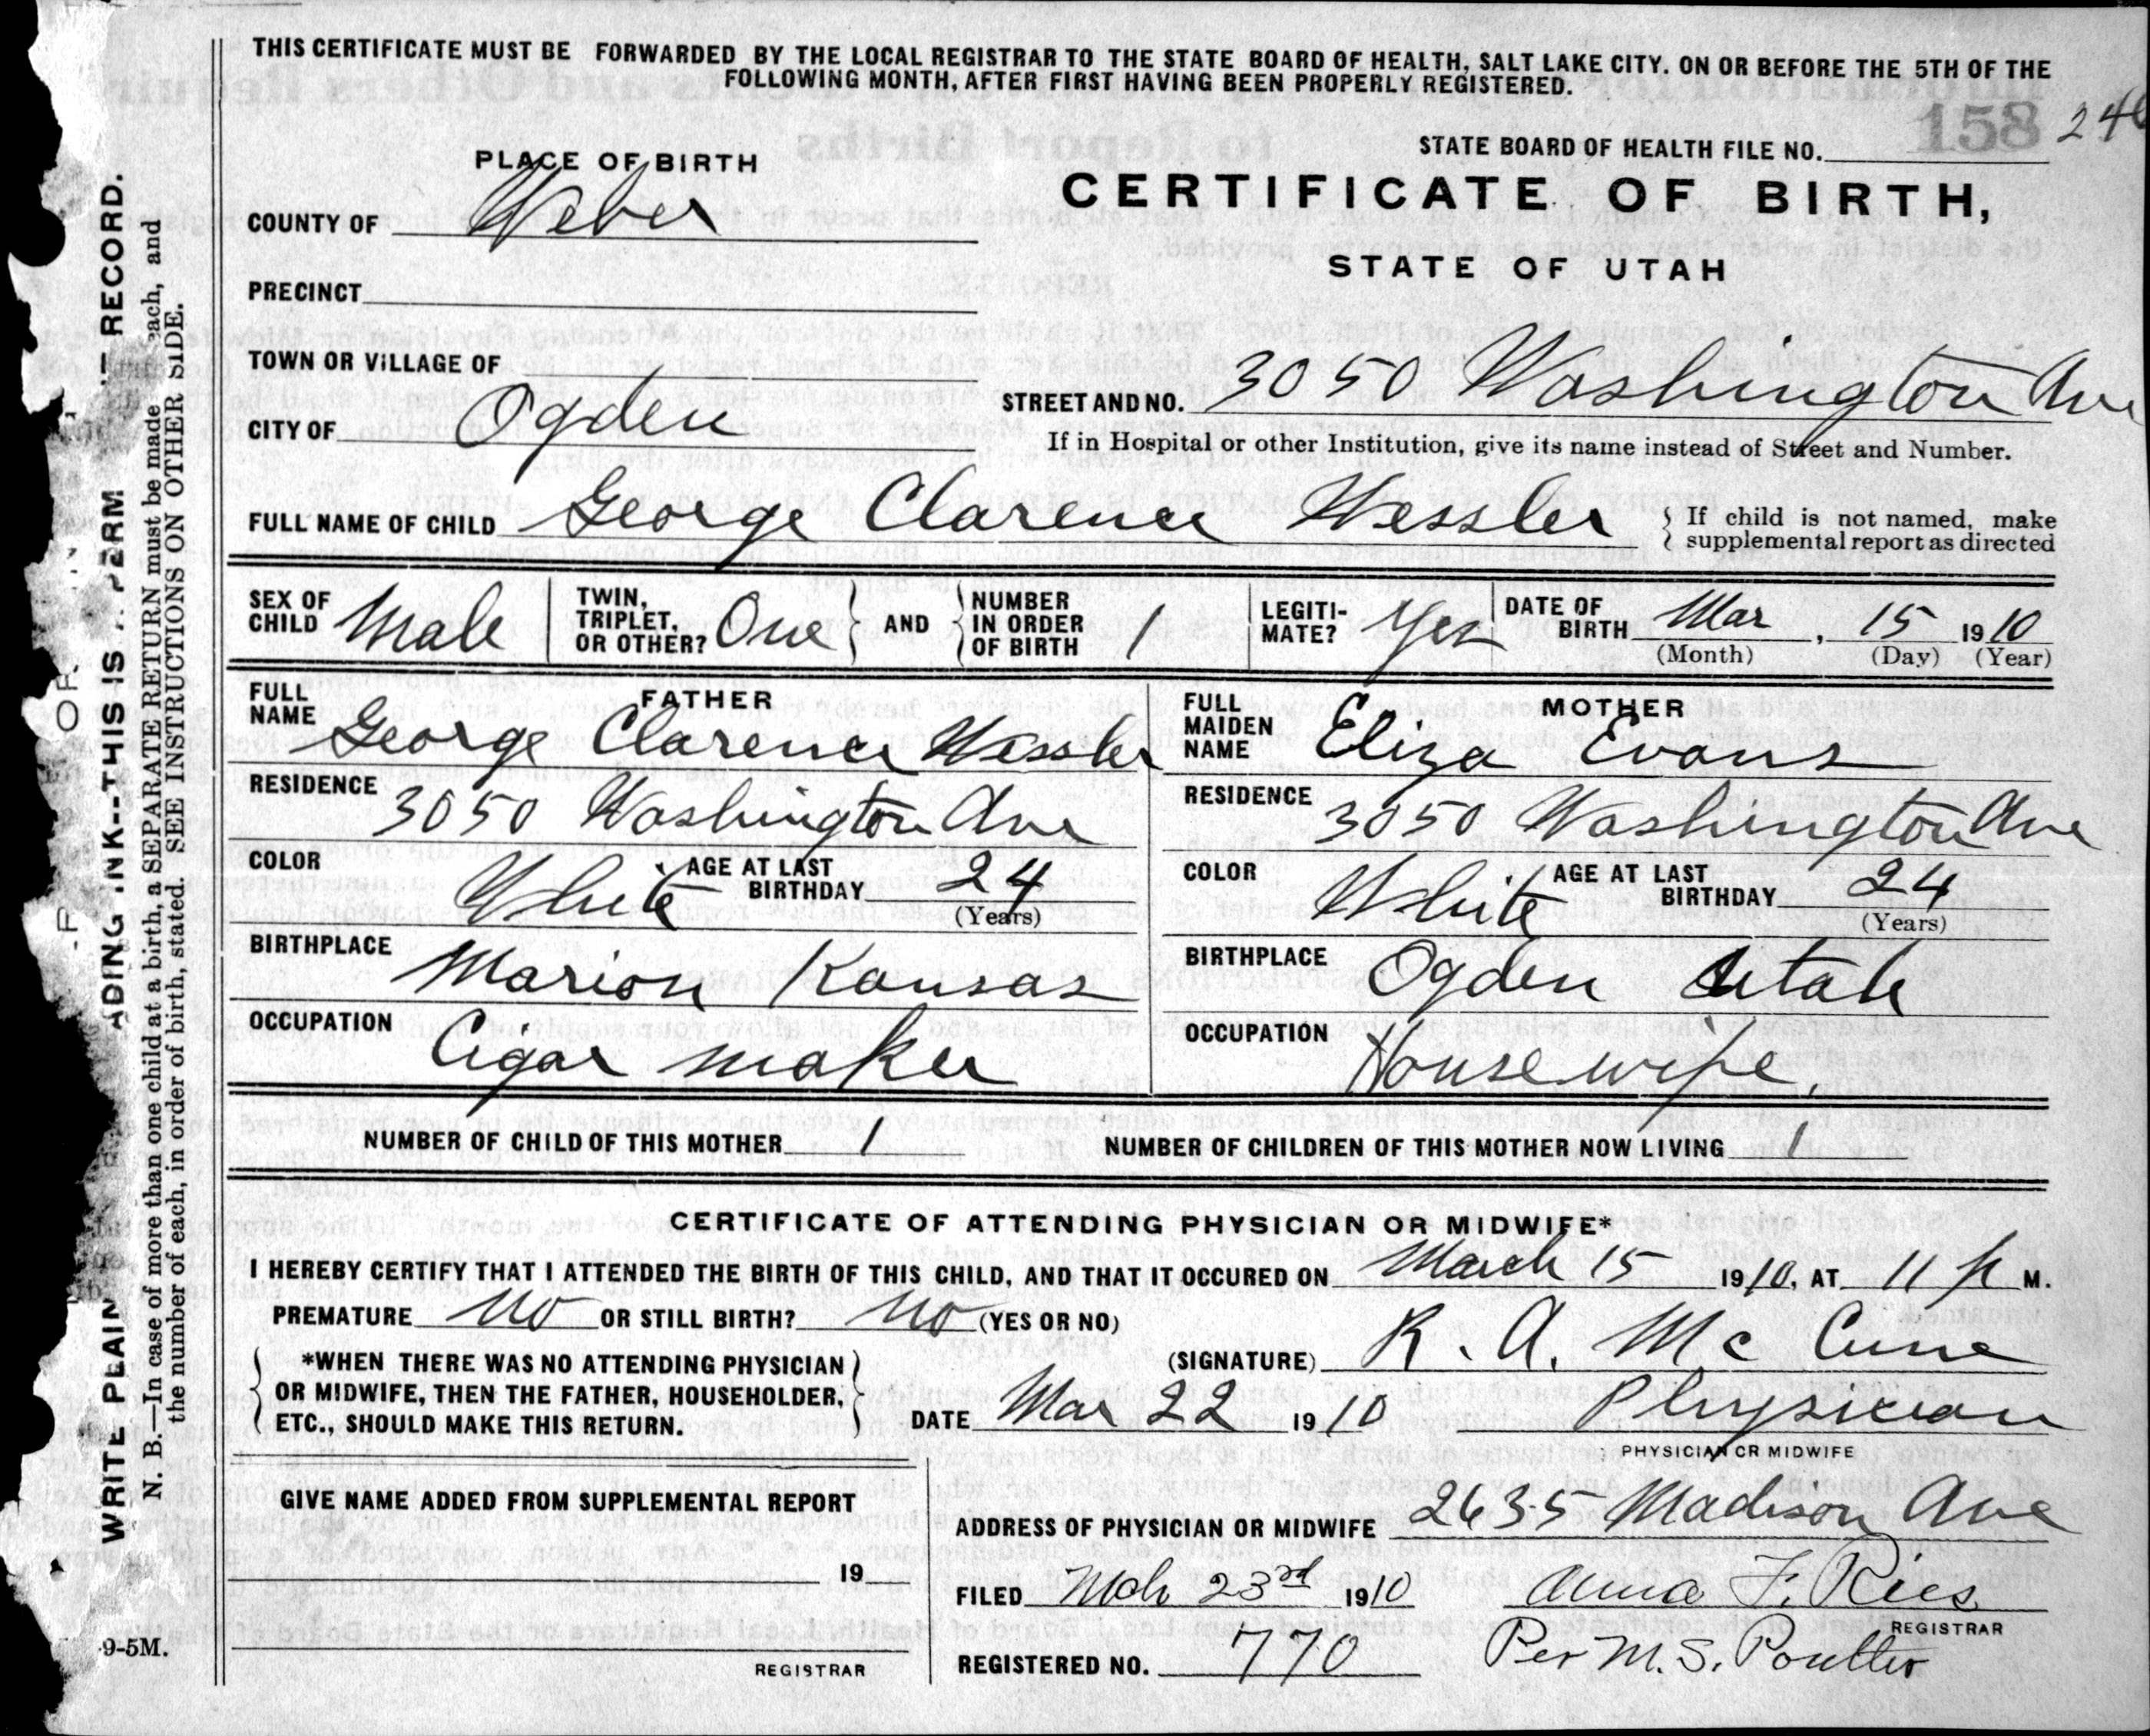 THIS CERTIFICATE MUST BE FORWARDED BY THE LOCAL REGISTRAR TO THE STATE BOARD OF HEALTH, SALT LAKE CITY. ON OR BEFORE THE 5TH OF THE
FOLLOWING MONTH, AFTER FIRST HAVING BEEN PROPERLY REGISTERED.
STATE BOARD OF HEALTH FILE NO. 158 246
PLACE OF BIRTH
CERTIFICATE OF BIRTH,
STATE OF UTAH
COUNTY OF Weber
PRECINCT
TOWN OR VILLAGE OF
CITY OF Ogden
STREET AND NO. 3050 Washington Ave
If in Hospital or other Institution, give its name instead of Street and Number.
FULL NAME OF CHILD George Clarence Wessler
If child is not named, make
supplemental report as directed
SEX OF CHILD Male
TWIN, TRIPLET, OR OTHER? One
AND
NUMBER IN ORDER OF BIRTH 1
LEGITI-MATE? Yes
DATE OF BIRTH Mar, 15 1910
(Month) (Day) (Year)
FATHER
FULL NAME George Clarence Wessler
RESIDENCE 3050 Washington Ave
COLOR White AGE AT LAST BIRTHDAY 24
(Years)
BIRTHPLACE Marion Kansas
OCCUPATION Cigar maker
MOTHER
FULL MAIDEN NAME Eliza Evans
RESIDENCE 3050 Washington Ave
COLOR White AGE AT LAST BIRTHDAY 24
(Years)
BIRTHPLACE Ogden Utah
OCCUPATION Housewife.
NUMBER OF CHILD OF THIS MOTHER 1 NUMBER OF CHILDREN OF THIS MOTHER NOW LIVING 1
CERTIFICATE OF ATTENDING PHYSICIAN OR MIDWIFE*
I HEREBY CERTIFY THAT I ATTENDED THE BIRTH OF THIS CHILD, AND THAT IT OCCURED ON March 15 1910, AT 11 p M.
PREMATURE no OR STILL BIRTH? no (YES OR NO)
*WHEN THERE WAS NO ATTENDING PHYSICIAN
OR MIDWIFE, THEN THE FATHER, HOUSEHOLDER,
ETC., SHOULD MAKE THIS RETURN.
(SIGNATURE) R. A. McCune
DATE Mar 22 1910 Physician
PHYSICIAN OR MIDWIFE
GIVE NAME ADDED FROM SUPPLEMENTAL REPORT
19
REGISTRAR
ADDRESS OF PHYSICIAN OR MIDWIFE 2635 Madison Ave
FILED Mch 23rd 1910 Anna F. Ries
REGISTRAR
REGISTERED NO. 770 Per M. S. Poulter
WRITE PLAIN ADING INK--THIS IS A PERM T RECORD.
N. B.—In case of more than one child at a birth, a SEPARATE RETURN must be made each, and
the number of each, in order of birth, stated. SEE INSTRUCTIONS ON OTHER SIDE.
9-5M.